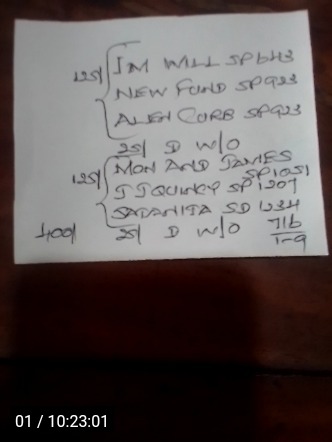 125/ I'M WILL SP643
NEW FUND SP923
ALEN CURB SP923
25/ D W/O
125/ MON AND JAMES
SP1051
J JQUINCY SP 1207
SATANITA SD 1234
400/ 25/ D W/O 716
1-9
01 / 10:23:01